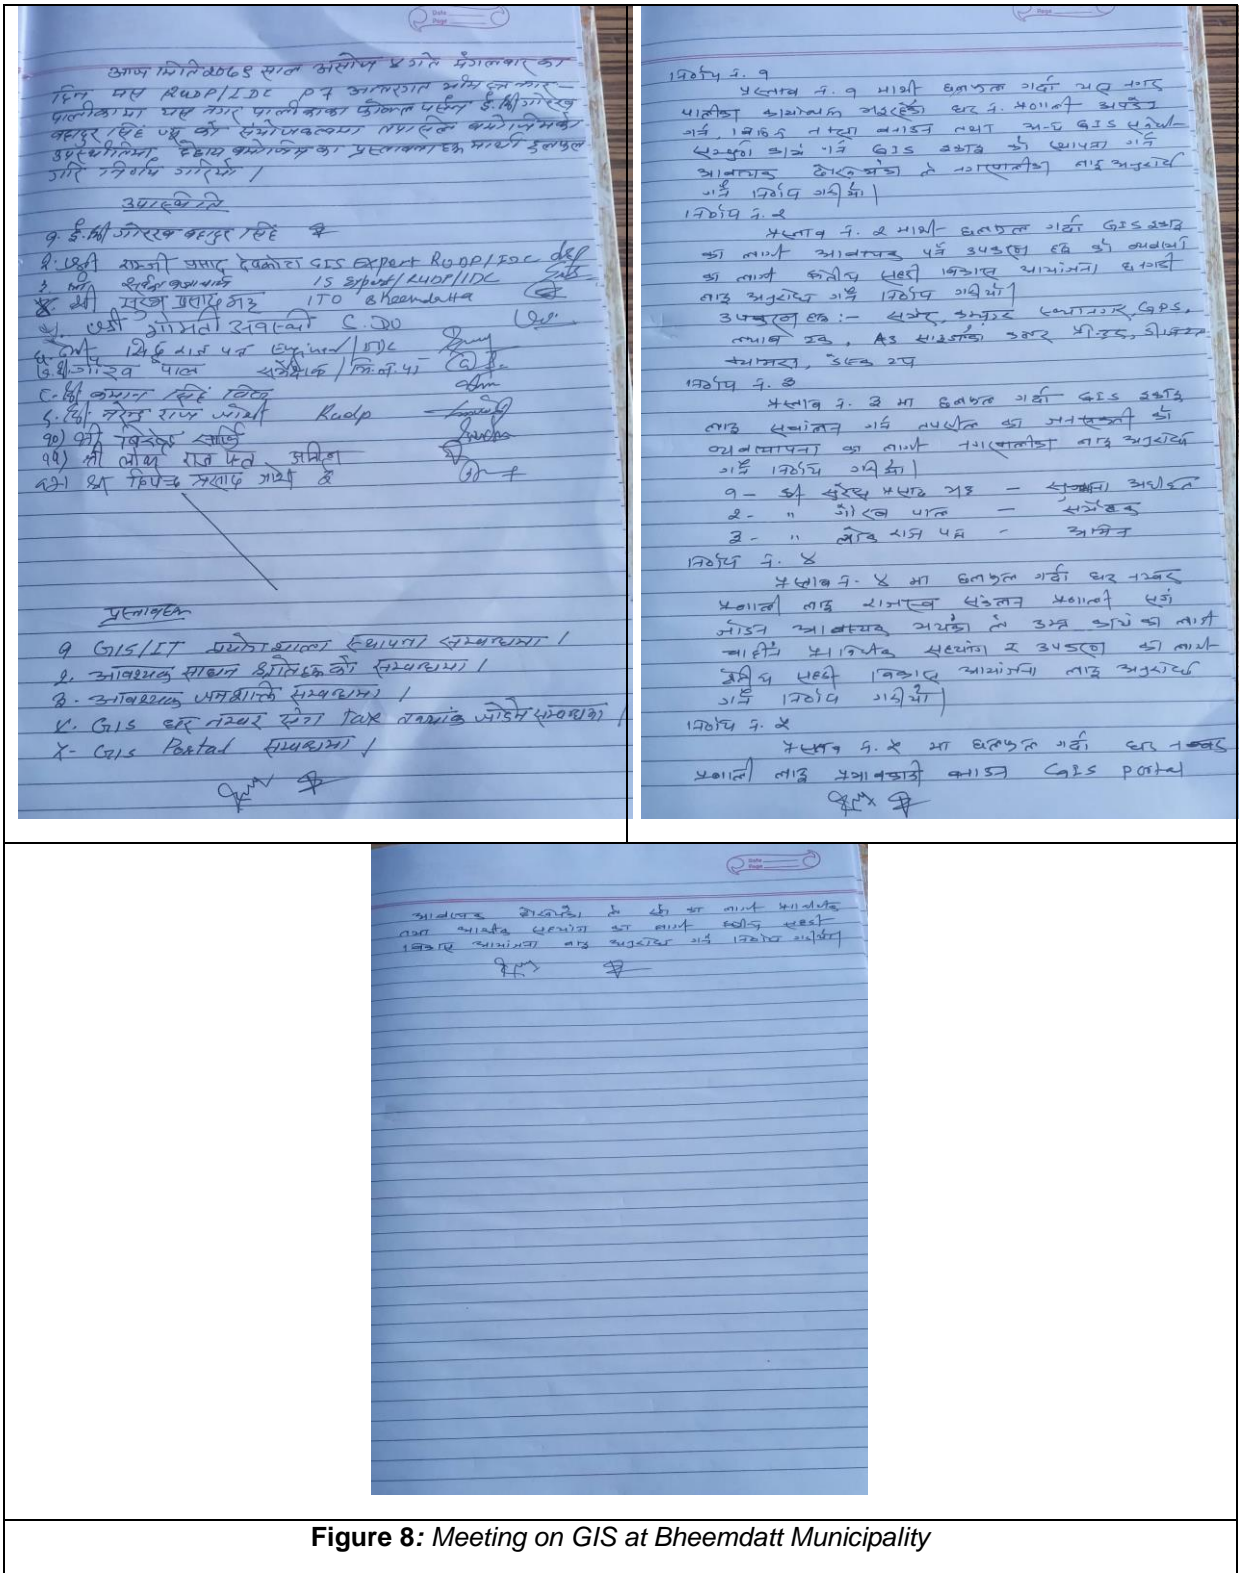 Date
Page
आज मिति २०७९ साल असोज ४ गते मंगलवार का
दिन यस RUDP/IDC P7 अन्तरगत भीमदत्त नगर-
पालीकामा यस नगर पालीकाका फोकल पर्सन ई. श्री गोरख
बहादुर सिंह ज्यू को संयोजकत्वमा तपासिल बमोजिमको
उपस्थीतिमा देहाय बमोजिम का प्रस्तावना हरु माथी छलफल
गरि निर्णय गरियो।
उपस्थिति
१. ई. श्री गोरख बहादुर सिंह
२. श्री रामजी प्रसाद देवकोटा GIS Expert RUDP/IDC
३. श्री IS Expert/RUDP/IDC
४. श्री सुरेश प्रसाद भट्ट ITO Bheemdatta
५. श्री गोमती अवस्थी C.DO
६. श्री सिद्द राज पन्त Engineer/IDC
७. श्री गोरख पाल सर्भेक्षक/भि.न.पा
८. श्री कमान सिंह विष्ट
९. श्री नरेन्द्र राज जोशी Rudp
१०) श्री
११) श्री लोक राज पन्त अमिन
१२। श्री दिपेन्द्र प्रसाद जोशी
प्रस्तावहरु
१ GIS/IT प्रयोगशाला स्थापना सम्बन्धमा।
२. आवश्यक साधन श्रोतहरुको सम्बन्धमा।
३. आवश्यक जनशक्ति सम्बन्धमा।
४. GIS घर नम्बर संग Tax तथ्यांक जोडने सम्बन्धमा।
५- GIS Portal सम्बन्धमा।
निर्णय नं. १
प्रस्ताव नं. १ माथी छलफल गर्दा यस नगर
पालीका कार्यान्वयन भइरहेको घर नं. प्रणाली अपडेट
गर्न, विभिन्न नक्सा बनाउन तथा अन्य GIS सम्बन्धी
सम्पुर्ण कार्य गर्न GIS इकाइ को स्थापना गर्न
आवश्यक देखिएको ले नगरपालीका लाइ अनुरोध
गर्ने निर्णय गरीयो।
निर्णय नं. २
प्रस्ताव नं. २ माथी छलफल गर्दा GIS इकाइ
का लागी आवश्यक पर्ने उपकरण हरु को व्यवस्था
का लागी क्षेत्रीय सहरी विकास आयोजना धनगढी
लाइ अनुरोध गर्ने निर्णय गरीयो।
उपकरण हरु :- सर्भर, कलर स्क्यानर, GPS,
ल्याप टप, A3 साइजको कलर प्रीन्टर, डीजिटल
क्यामरा, डेस्क टप
निर्णय नं. ३
प्रस्ताव नं. ३ मा छलफल गर्दा GIS इकाइ
लाइ संचालन गर्न तपशील का जनशक्ती को
व्यवस्थापना का लागी नगरपालीका लाइ अनुरोध
गर्ने निर्णय गरीयो।
१- श्री सुरेश प्रसाद भट्ट - सुचना अधीकृत
२- " गोरख पाल - सर्भेक्षक
३- " लोक राज पन्त - अमिन
निर्णय नं. ४
प्रस्ताव नं. ४ मा छलफल गर्दा घर नम्बर
प्रणाली लाइ राजस्व संकलन प्रणाली संग
जोडन आवश्यक भएको ले उक्त कार्य का लागी
चाहीने प्राविधीक सहयोग र उपकरण को लागी
क्षेत्रीय सहरी विकास आयोजना लाइ अनुरोध
गर्ने निर्णय गरीयो।
निर्णय नं. ५
प्रस्ताव नं. ५ मा छलफल गर्दा घर नम्बर
प्रणाली लाइ प्रभावकारी बनाउन GIS Portal
Date
Page
आवश्यक देखिएको ले सो का लागी प्राविधीक
तथा आर्थीक सहयोग का लागी क्षेत्रीय सहरी
विकास आयोजना लाइ अनुरोध गर्ने निर्णय गरीयो।
Figure 8: Meeting on GIS at Bheemdatt Municipality